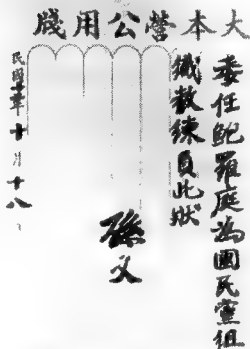 大本營公用牋
委任鮑羅庭為國民黨組
織教練員此狀
孫文
民國十二年十月十八